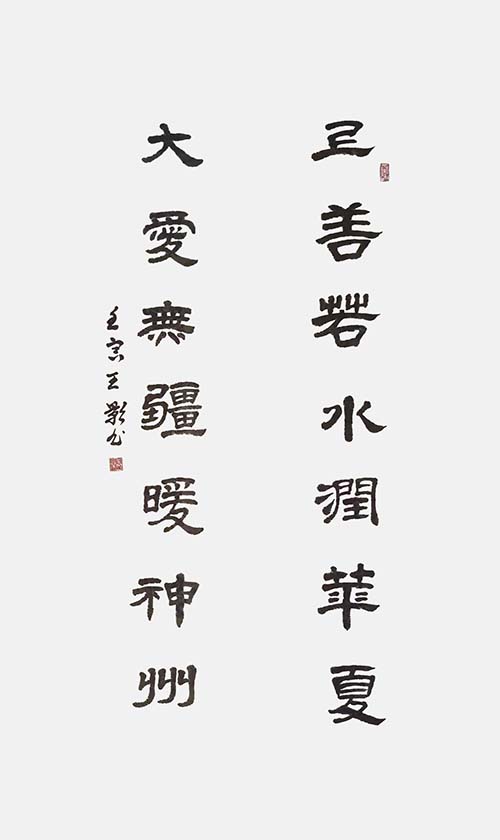 上善若水潤華夏
大愛無疆暖神州
壬寅王影书